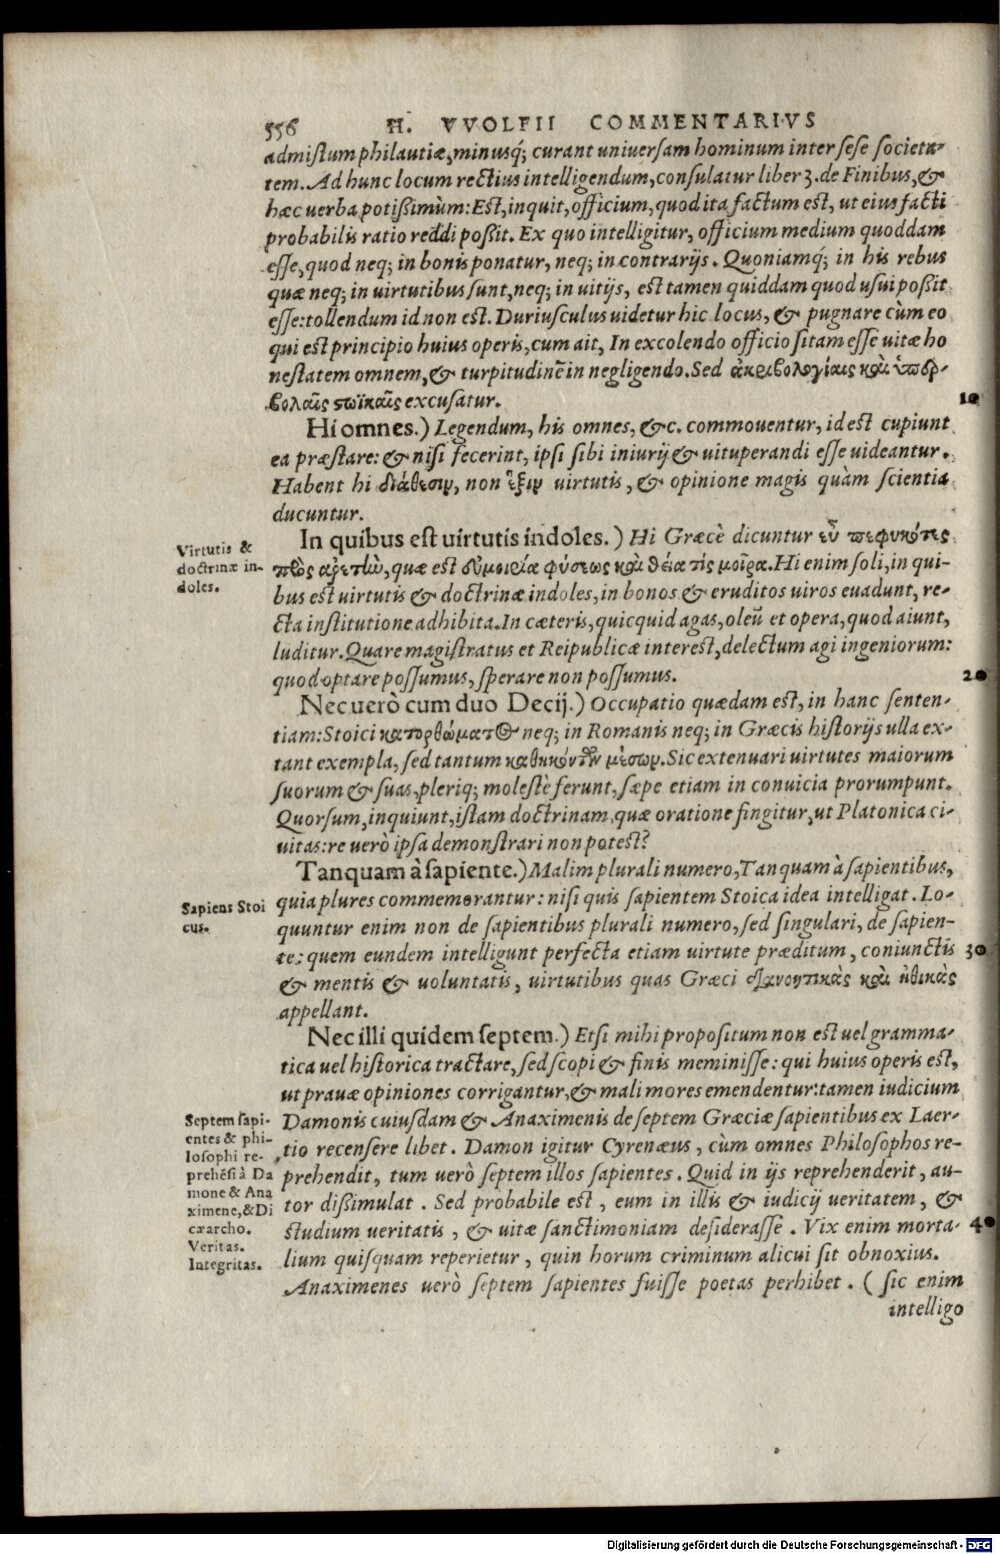 556 H. VVOLFII COMMENTARIVS
admistum philautiæ, minusq́; curant uniuersam hominum inter sese societa-
tem. Ad hunc locum rectius intelligendum, consulatur liber 3. de Finibus, &
hæc uerba potißimùm: Est, inquit, officium, quod ita factum est, ut eius facti
probabilis ratio reddi poßit. Ex quo intelligitur, officium medium quoddam
esse, quod neq; in bonis ponatur, neq; in contrarijs. Quoniamq́; in his rebus
quæ neq; in uirtutibus sunt, neq; in uitijs, est tamen quiddam quod usui poßit
esse: tollendum id non est. Duriusculus uidetur hic locus, & pugnare cùm eo
qui est principio huius operis, cum ait, In excolendo officio sitam esse uitæ ho
nestatem omnem, & turpitudinē in negligendo. Sed ἀκριβολογίαις καὶ ὑπερ-
βολαῖς στωϊκαῖς excusatur.
10
Hi omnes.) Legendum, his omnes, &c. commouentur, id est cupiunt
ea præstare: & nisi fecerint, ipsi sibi iniurij & uituperandi esse uideantur.
Habent hi διάθεσιν, non ἕξιν uirtutis, & opinione magis quàm scientia
ducuntur.
In quibus est uirtutis indoles.) Hi Græcè dicuntur εὖ πεφυκότες
Virtutis &
doctrinæ in-
doles.
πρὸς ἀρετὴν, quæ est εὐμοιρία φύσεως καὶ θεία τίς μοῖρα. Hi enim soli, in qui-
bus est uirtutis & doctrinæ indoles, in bonos & eruditos uiros euadunt, re-
cta institutione adhibita. In cæteris, quicquid agas, oleū et opera, quod aiunt,
luditur. Quare magistratus et Reipublicæ interest, delectum agi ingeniorum:
quod optare possumus, sperare non possumus.
20
Nec uerò cum duo Decij.) Occupatio quædam est, in hanc senten-
tiam: Stoici κατορθώματος neq; in Romanis neq; in Græcis historijs ulla ex-
tant exempla, sed tantum καθηκόντων μέσων. Sic extenuari uirtutes maiorum
suorum & suas, pleriq; molestè ferunt, sæpe etiam in conuicia prorumpunt.
Quorsum, inquiunt, istam doctrinam, quæ oratione fingitur, ut Platonica ci-
uitas: re uerò ipsa demonstrari non potest?
Tanquam à sapiente.) Malim plurali numero, Tanquam à sapientibus,
Sapiens Stoi
cus.
quia plures commemorantur: nisi quis sapientem Stoica idea intelligat. Lo-
quuntur enim non de sapientibus plurali numero, sed singulari, de sapien-
te: quem eundem intelligunt perfecta etiam uirtute præditum, coniunctis
30
& mentis & uoluntatis, uirtutibus quas Græci διανοητικὰς καὶ ἠθικὰς
appellant.
Nec illi quidem septem.) Etsi mihi propositum non est uel gramma-
tica uel historica tractare, sed scopi & finis meminisse: qui huius operis est,
ut prauæ opiniones corrigantur, & mali mores emendentur: tamen iudicium
Septem sapi-
entes & phi-
losophi re-
prehēsi à Da
mone & Ana
ximene, & Di
cæarcho.
Veritas.
Integritas.
Damonis cuiusdam & Anaximenis de septem Græciæ sapientibus ex Laer-
tio recensere libet. Damon igitur Cyrenæus, cùm omnes Philosophos re-
prehendit, tum uerò septem illos sapientes. Quid in ijs reprehenderit, au-
tor dißimulat. Sed probabile est, eum in illis & iudicij ueritatem, &
studium ueritatis, & uitæ sanctimoniam desiderasse. Vix enim morta-
40
lium quisquam reperietur, quin horum criminum alicui sit obnoxius.
Anaximenes uerò septem sapientes fuisse poetas perhibet. ( sic enim
intelligo
Digitalisierung gefördert durch die Deutsche Forschungsgemeinschaft - DFG